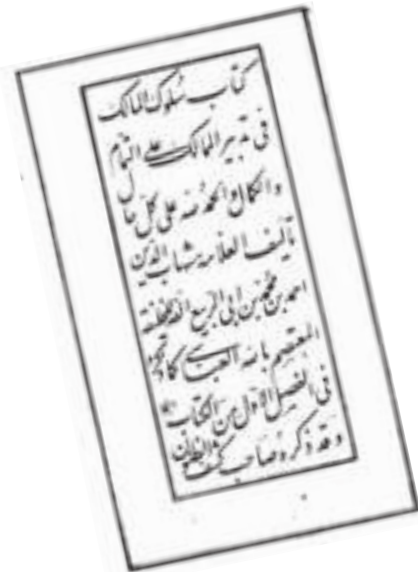 كتاب سلوك المالك
في تدبير الممالك على التمام
والكمال والحمد لله على كل حال
تأليف العلامة شهاب الدين
احمد بن محمد بن ابي الربيع الفه للخليفة
المعتصم بالله العباسي كما تجده
في الفصل الاول من الكتاب
وقد ذكره صاحب كشف الظنون